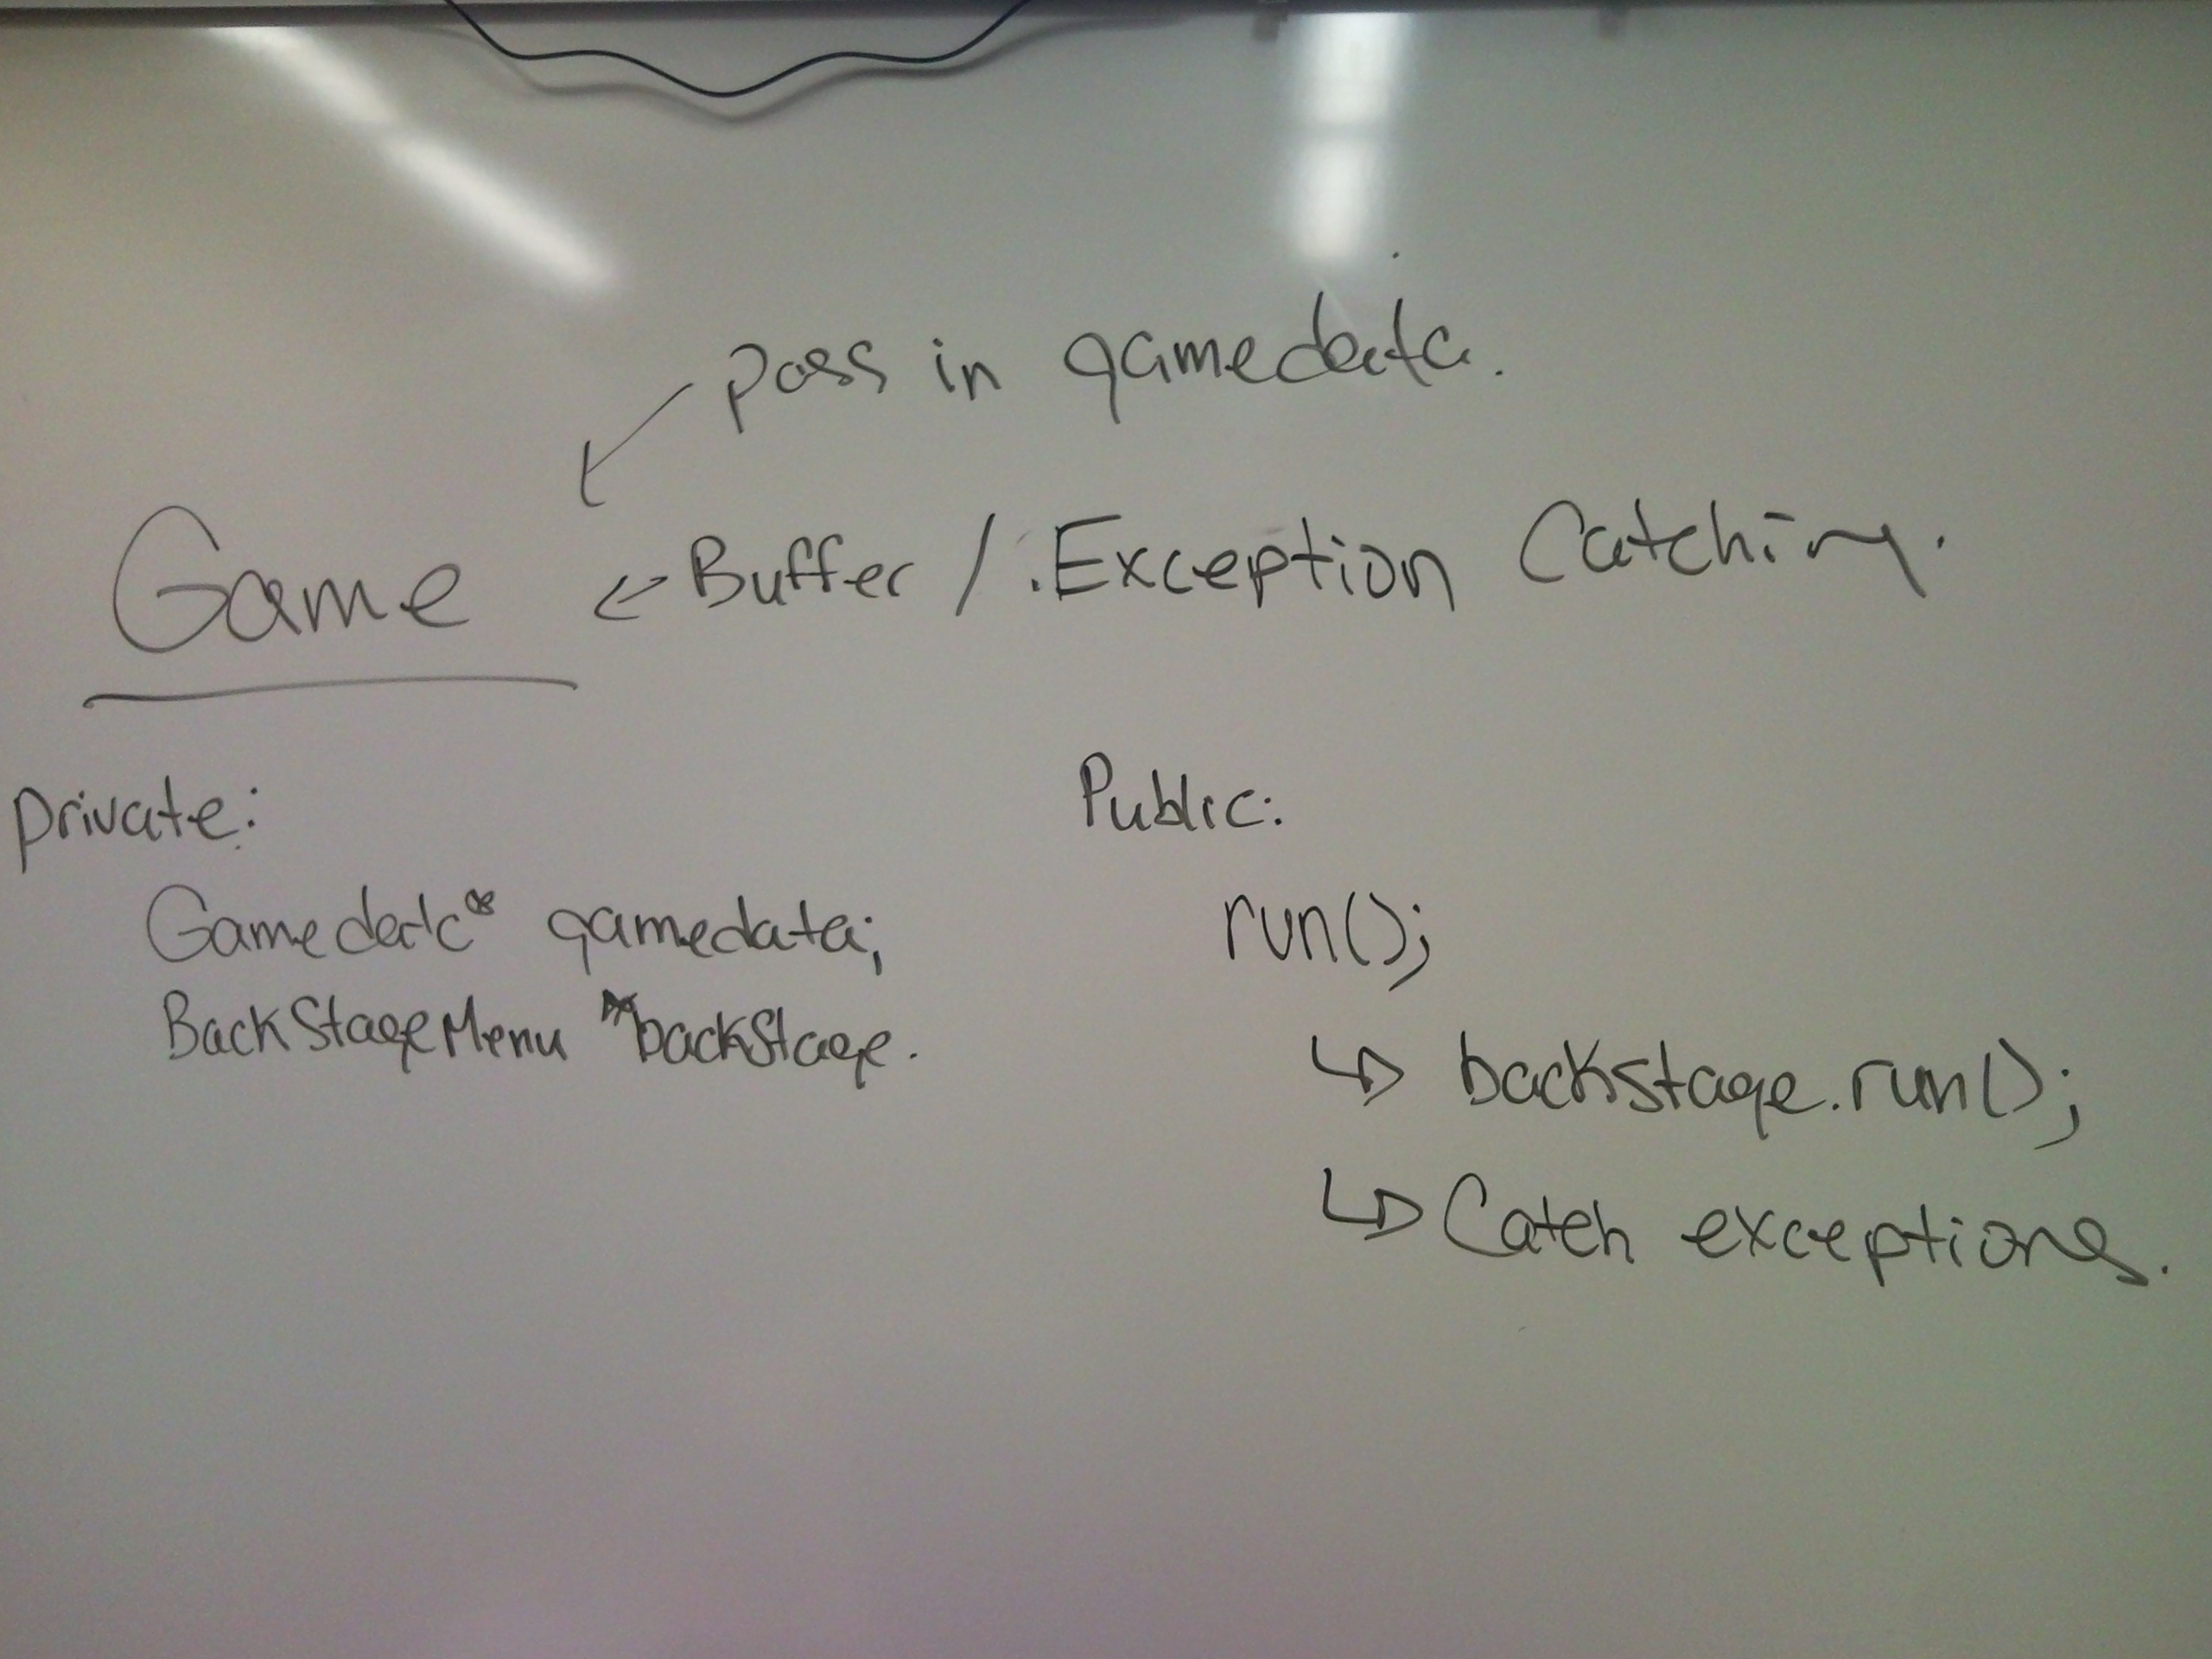 pass in gamedata.
Game ← Buffer / Exception Catching.
private:
Gamedata* gamedata;
BackStageMenu *backStage.
Public:
run();
↳ backstage.run();
↳ Catch exceptions.